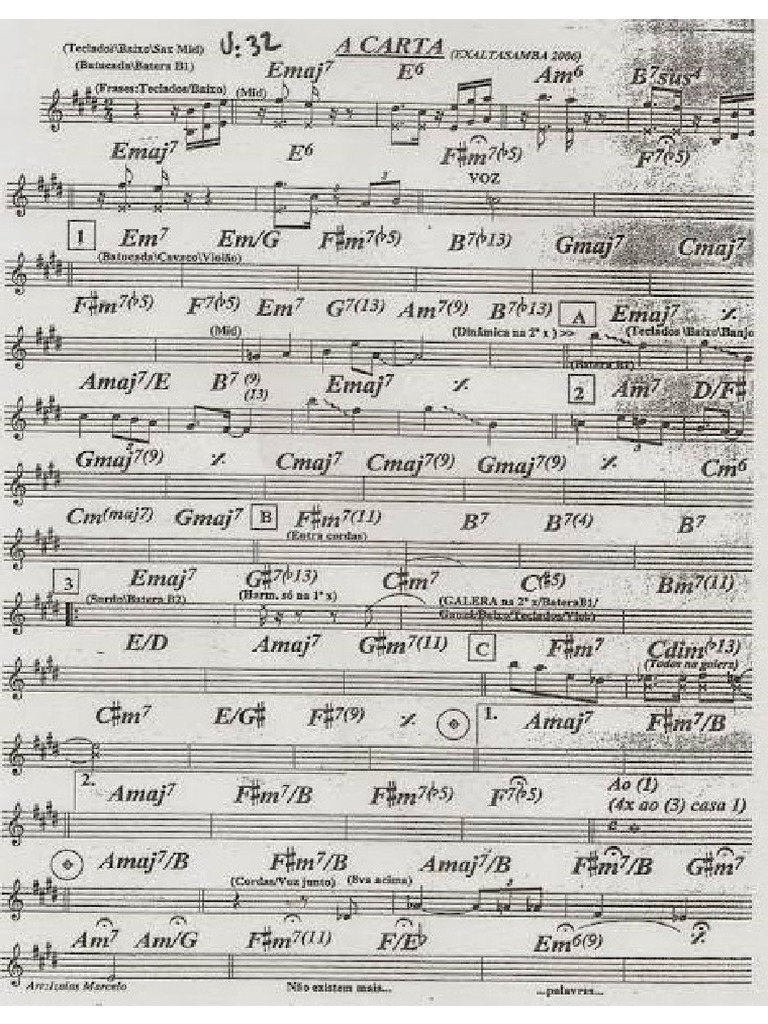 (Teclados\Baixo\Sax Mid) V: 32 A CARTA (EXALTASAMBA 2006)
(Batucada\Batera B1)
Emaj7 E6 Am6 B7sus4
(Frases:Teclados/Baixo) (Mid)
Emaj7 E6 F#m7(b5) F7(b5)
VOZ
1 Em7 Em/G F#m7(b5) B7(b13) Gmaj7 Cmaj7
(Batucada\Cavaco\Violão)
F#m7(b5) F7(b5) Em7 G7(13) Am7(9) B7(b13) A Emaj7 %
(Mid) (Dinâmica na 2ª x) >> (Teclados\Baixo\Banjo
(Batera B1)
Amaj7/E B7 (9) Emaj7 % 2 Am7 D/F#
(13)
Gmaj7(9) % Cmaj7 Cmaj7(9) Gmaj7(9) % Cm6
Cm(maj7) Gmaj7 B F#m7(11) B7 B7(4) B7
(Entra cordas)
3 Emaj7 G#7(b13) C#m7 C(#5) Bm7(11)
(Surdo\Batera B2) (Harm. só na 1ª x) (GALERA na 2ª x/BateraB1/
E/D Amaj7 G#m7(11) C F#m7 Cdim(b13)
(Todos na galera)
C#m7 E/G# F#7(9) % 1. Amaj7 F#m7/B
2. Amaj7 F#m7/B F#m7(b5) F7(b5) Ao (1)
(4x ao (3) casa 1)
Amaj7/B F#m7/B Amaj7/B F#m7/B G#m7
(Cordas/Voz junto) (8va acima)
Am7 Am/G F#m7(11) F/Eb Em6(9) %
Arr:Izaias Marcelo Não existem mais... ...palavras...